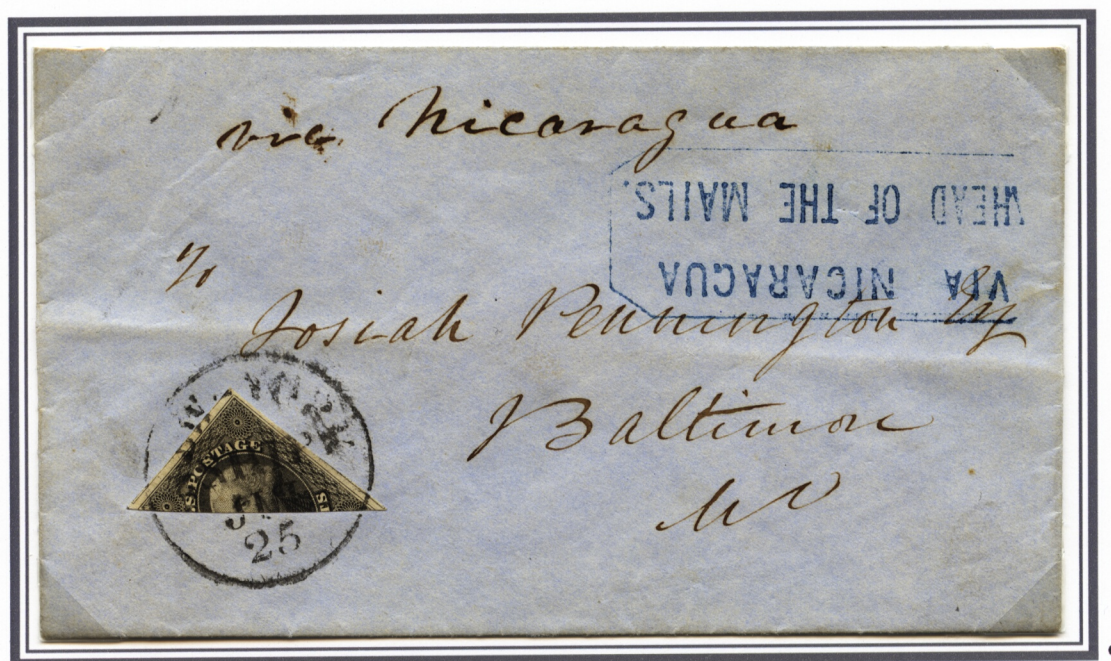 via Nicaragua
VIA NICARAGUA
AHEAD OF THE MAILS.
To
Josiah Pennington Esq
Baltimore
Md
W-YORK
S. POSTAGE
ST
25